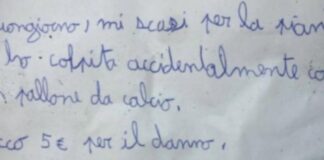 uongiorno, mi scusi per la pian
ho colpita accidentalmente co
pallone da calcio.
cco 5€ per il danno.